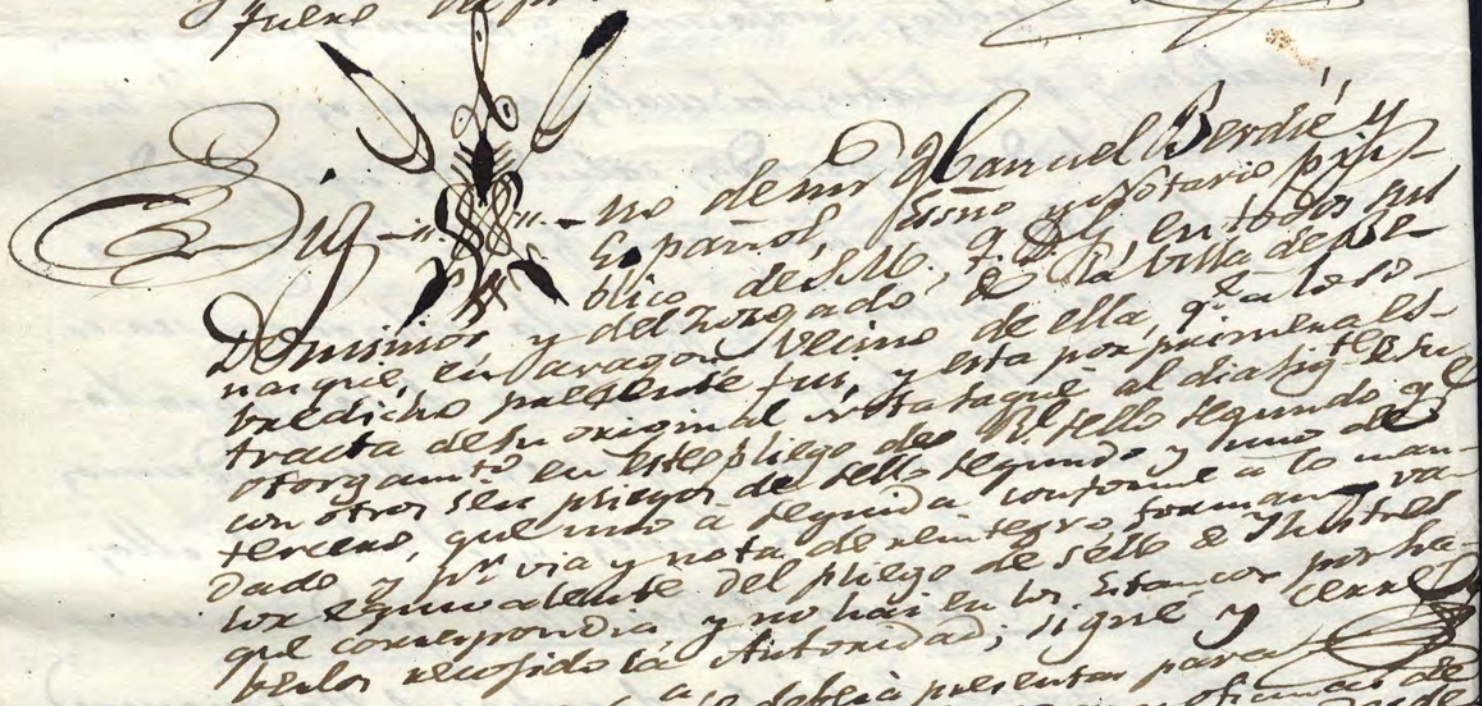 fuere
Sig-no de mi Manuel Berdié y
Español, Essno y Notario pú-
blico de S.M., q. D. G. en todos sus
Dominios y del Juzgado de la villa de Be-
nasque, en Aragon Vecino de ella, qe. a lo so-
bredicho presente fui, y esta por primera es-
tracta de su original nota saqué al dia sigte. de su
otorgamto. en este pliego del Rl. sello segundo qe.
con otros seis pliegos de sello segundo y uno de
tercero, que uno á seguida conforme á lo man-
dado y pr. via y nota de reintegro, forman va-
lor equivalente del pliego de sello de Ilustres
que correspondia, y no hai en los Estancos por ha-
berlos recogido la Autoridad; signé y cerré
se debera presentar para
oficinas de